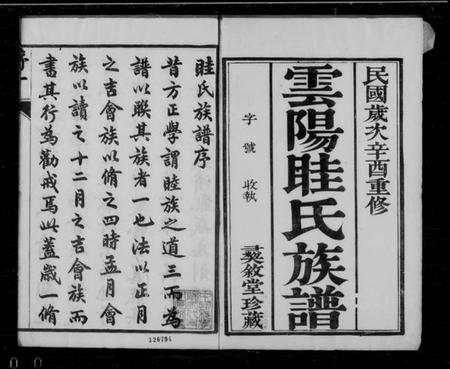 民國歲次辛酉重修
雲陽眭氏族譜
字號 收執
敘堂珍藏
眭氏族譜序
昔方正學謂睦族之道三而為
譜以聯其族者一也法以正月
之吉會族以脩之四時孟月會
族以讀之十二月之吉會族而
書其行為勸戒焉此蓋歲一脩
126794